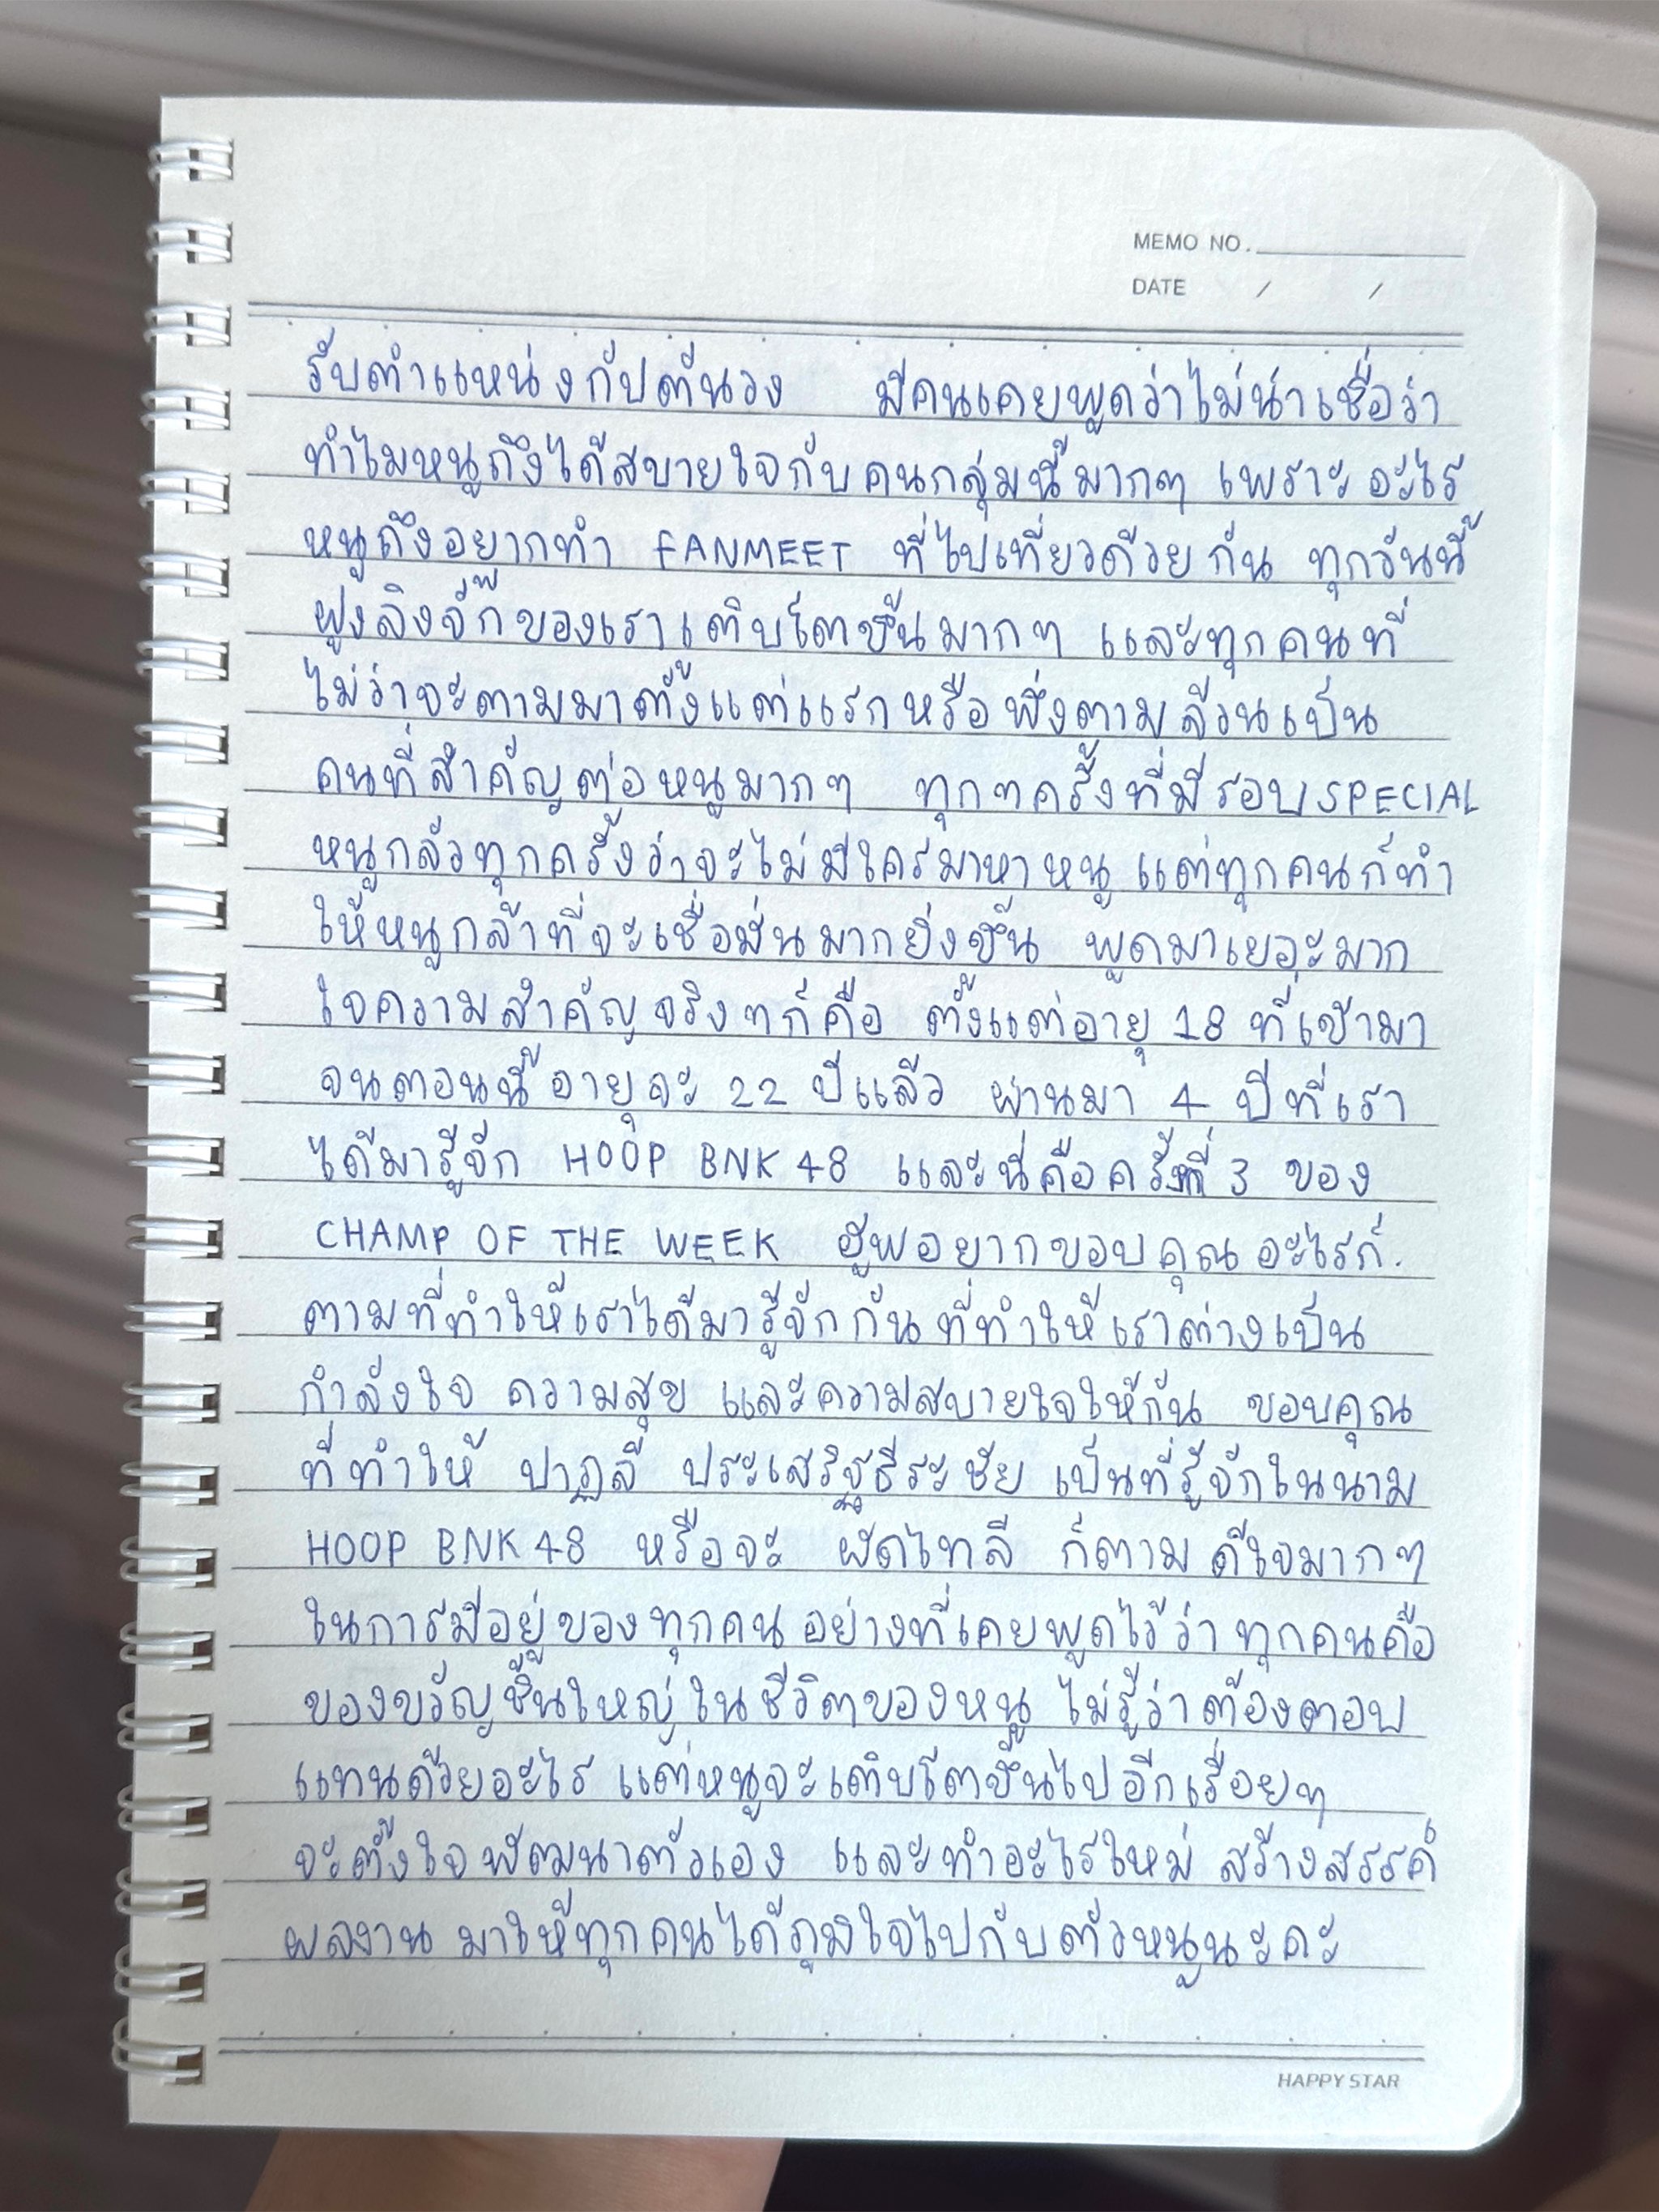 MEMO NO.
DATE / /
รับตำแหน่งกัปตันวง มีคนเคยพูดว่าไม่น่าเชื่อว่า
ทำไมหนูถึงได้สบายใจกับคนกลุ่มนี้มากๆ เพราะอะไร
หนูถึงอยากทำ FANMEET ที่ไปเที่ยวด้วยกัน ทุกวันนี้
ฝูงลิงจั๊กของเราเติบโตขึ้นมากๆ และทุกคนที่
ไม่ว่าจะตามมาตั้งแต่แรกหรือพึ่งตามล้วนเป็น
คนที่สำคัญต่อหนูมากๆ ทุกๆครั้งที่มีรอบ SPECIAL
หนูกลัวทุกครั้งว่าจะไม่มีใครมาหาหนู แต่ทุกคนก็ทำ
ให้หนูกล้าที่จะเชื่อมั่นมากยิ่งขึ้น พูดมาเยอะมาก
ใจความสำคัญจริงๆก็คือ ตั้งแต่อายุ 18 ที่เข้ามา
จนตอนนี้อายุจะ 22 ปีแล้ว ผ่านมา 4 ปีที่เรา
ได้มารู้จัก HOOP BNK48 และนี่คือครั้งที่ 3 ของ
CHAMP OF THE WEEK ฮูพอยากขอบคุณอะไรก็.
ตามที่ทำให้เราได้มารู้จักกันที่ทำให้เราต่างเป็น
กำลังใจ ความสุข และความสบายใจให้กัน ขอบคุณ
ที่ทำให้ ปาฏลี ประเสริฐธีระชัย เป็นที่รู้จักในนาม
HOOP BNK48 หรือจะ ผัดไทลี ก็ตาม ดีใจมากๆ
ในการมีอยู่ของทุกคน อย่างที่เคยพูดไว้ว่า ทุกคนคือ
ของขวัญชิ้นใหญ่ในชีวิตของหนู ไม่รู้ว่าต้องตอบ
แทนด้วยอะไร แต่หนูจะเติบโตขึ้นไปอีกเรื่อยๆ
จะตั้งใจพัฒนาตัวเอง และทำอะไรใหม่ สร้างสรรค์
ผลงาน มาให้ทุกคนได้ภูมิใจไปกับตัวหนูนะคะ
HAPPY STAR